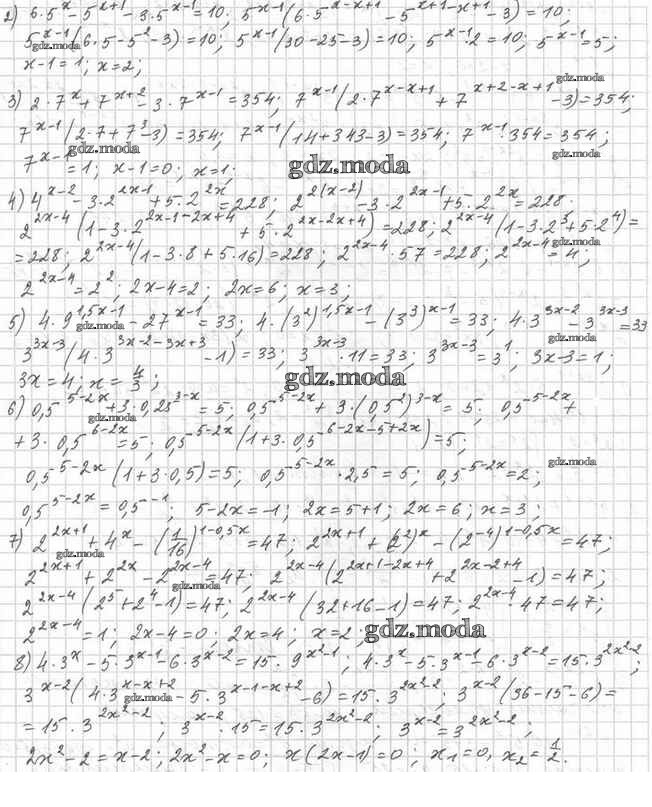 2) 6·5^x - 5^{x+1} - 3·5^{x-1} = 10; 5^{x-1}(6·5^{x-x+1} - 5^{x+1-x+1} - 3) = 10;
5^{x-1}(6·5 - 5^2 - 3) = 10; 5^{x-1}(30-25-3) = 10; 5^{x-1}·2 = 10; 5^{x-1} = 5;
gdz.moda
gdz.moda
x-1 = 1; x = 2;
gdz.moda
3) 2·7^x + 7^{x+2} - 3·7^{x-1} = 354; 7^{x-1}(2·7^{x-x+1} + 7^{x+2-x+1} - 3) = 354;
7^{x-1}(2·7 + 7^3 - 3) = 354; 7^{x-1}(14+343-3) = 354; 7^{x-1}·354 = 354;
gdz.moda
gdz.moda
7^{x-1} = 1; x-1 = 0; x = 1;
gdz.moda
4) 4^{x-2} - 3·2^{2x-1} + 5·2^{2x} = 228; 2^{2(x-2)} - 3·2^{2x-1} + 5·2^{2x} = 228.
2^{2x-4}(1 - 3·2^{2x-1-2x+4} + 5·2^{2x-2x+4}) = 228; 2^{2x-4}(1-3·2^3+5·2^4) =
gdz.moda
= 228; 2^{2x-4}(1-3·8+5·16) = 228; 2^{2x-4}·57 = 228; 2^{2x-4} = 4;
2^{2x-4} = 2^2; 2x-4 = 2; 2x = 6; x = 3;
5) 4·9^{1,5x-1} - 27^{x-1} = 33; 4·(3^2)^{1,5x-1} - (3^3)^{x-1} = 33; 4·3^{3x-2} - 3^{3x-3} = 33
gdz.moda
gdz.moda
3^{3x-3}(4·3^{3x-2-3x+3} - 1) = 33; 3^{3x-3}·11 = 33; 3^{3x-3} = 3^1; 3x-3 = 1;
3x = 4; x = 4/3;
gdz.moda
6) 0,5^{5-2x} + 3·0,25^{3-x} = 5; 0,5^{5-2x} + 3·(0,5^2)^{3-x} = 5; 0,5^{5-2x} +
gdz.moda
+ 3·0,5^{6-2x} = 5; 0,5^{5-2x}(1+3·0,5^{6-2x-5+2x}) = 5;
gdz.moda
0,5^{5-2x}(1+3·0,5) = 5; 0,5^{5-2x}·2,5 = 5; 0,5^{5-2x} = 2;
0,5^{5-2x} = 0,5^{-1}; 5-2x = -1; 2x = 5+1; 2x = 6; x = 3;
7) 2^{2x+1} + 4^x - (1/16)^{1-0,5x} = 47; 2^{2x+1} + (2^2)^x - (2^{-4})^{1-0,5x} = 47;
gdz.moda
gdz.moda
2^{2x+1} + 2^{2x} - 2^{2x-4} = 47; 2^{2x-4}(2^{2x+1-2x+4} + 2^{2x-2x+4} - 1) = 47;
gdz.moda
2^{2x-4}(2^5+2^4-1) = 47; 2^{2x-4}(32+16-1) = 47; 2^{2x-4}·47 = 47;
gdz.moda
2^{2x-4} = 1; 2x-4 = 0; 2x = 4; x = 2;
gdz.moda
8) 4·3^x - 5·3^{x-1} - 6·3^{x-2} = 15·9^{x^2-1}; 4·3^x - 5·3^{x-1} - 6·3^{x-2} = 15·3^{2x^2-2};
gdz.moda
3^{x-2}(4·3^{x-x+2} - 5·3^{x-1-x+2} - 6) = 15·3^{2x^2-2}; 3^{x-2}(36-15-6) =
gdz.moda
= 15·3^{2x^2-2}; 3^{x-2}·15 = 15·3^{2x^2-2}; 3^{x-2} = 3^{2x^2-2};
gdz.moda
2x^2-2 = x-2; 2x^2-x = 0; x(2x-1) = 0; x_1 = 0, x_2 = 1/2.